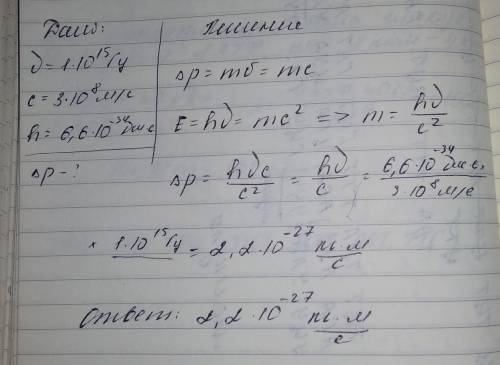 Дано:
ν = 1·10¹⁵ Гц
c = 3·10⁸ м/с
h = 6,6·10⁻³⁴ Дж·с
Δp - ?
Решение
Δp = mυ = mc
E = hν = mc² => m = hν/c²
Δp = hνc/c² = hν/c = 6,6·10⁻³⁴ Дж·с/3·10⁸ м/с
× 1·10¹⁵ Гц = 2,2·10⁻²⁷ кг·м/с
Ответ: 2,2·10⁻²⁷ кг·м/с